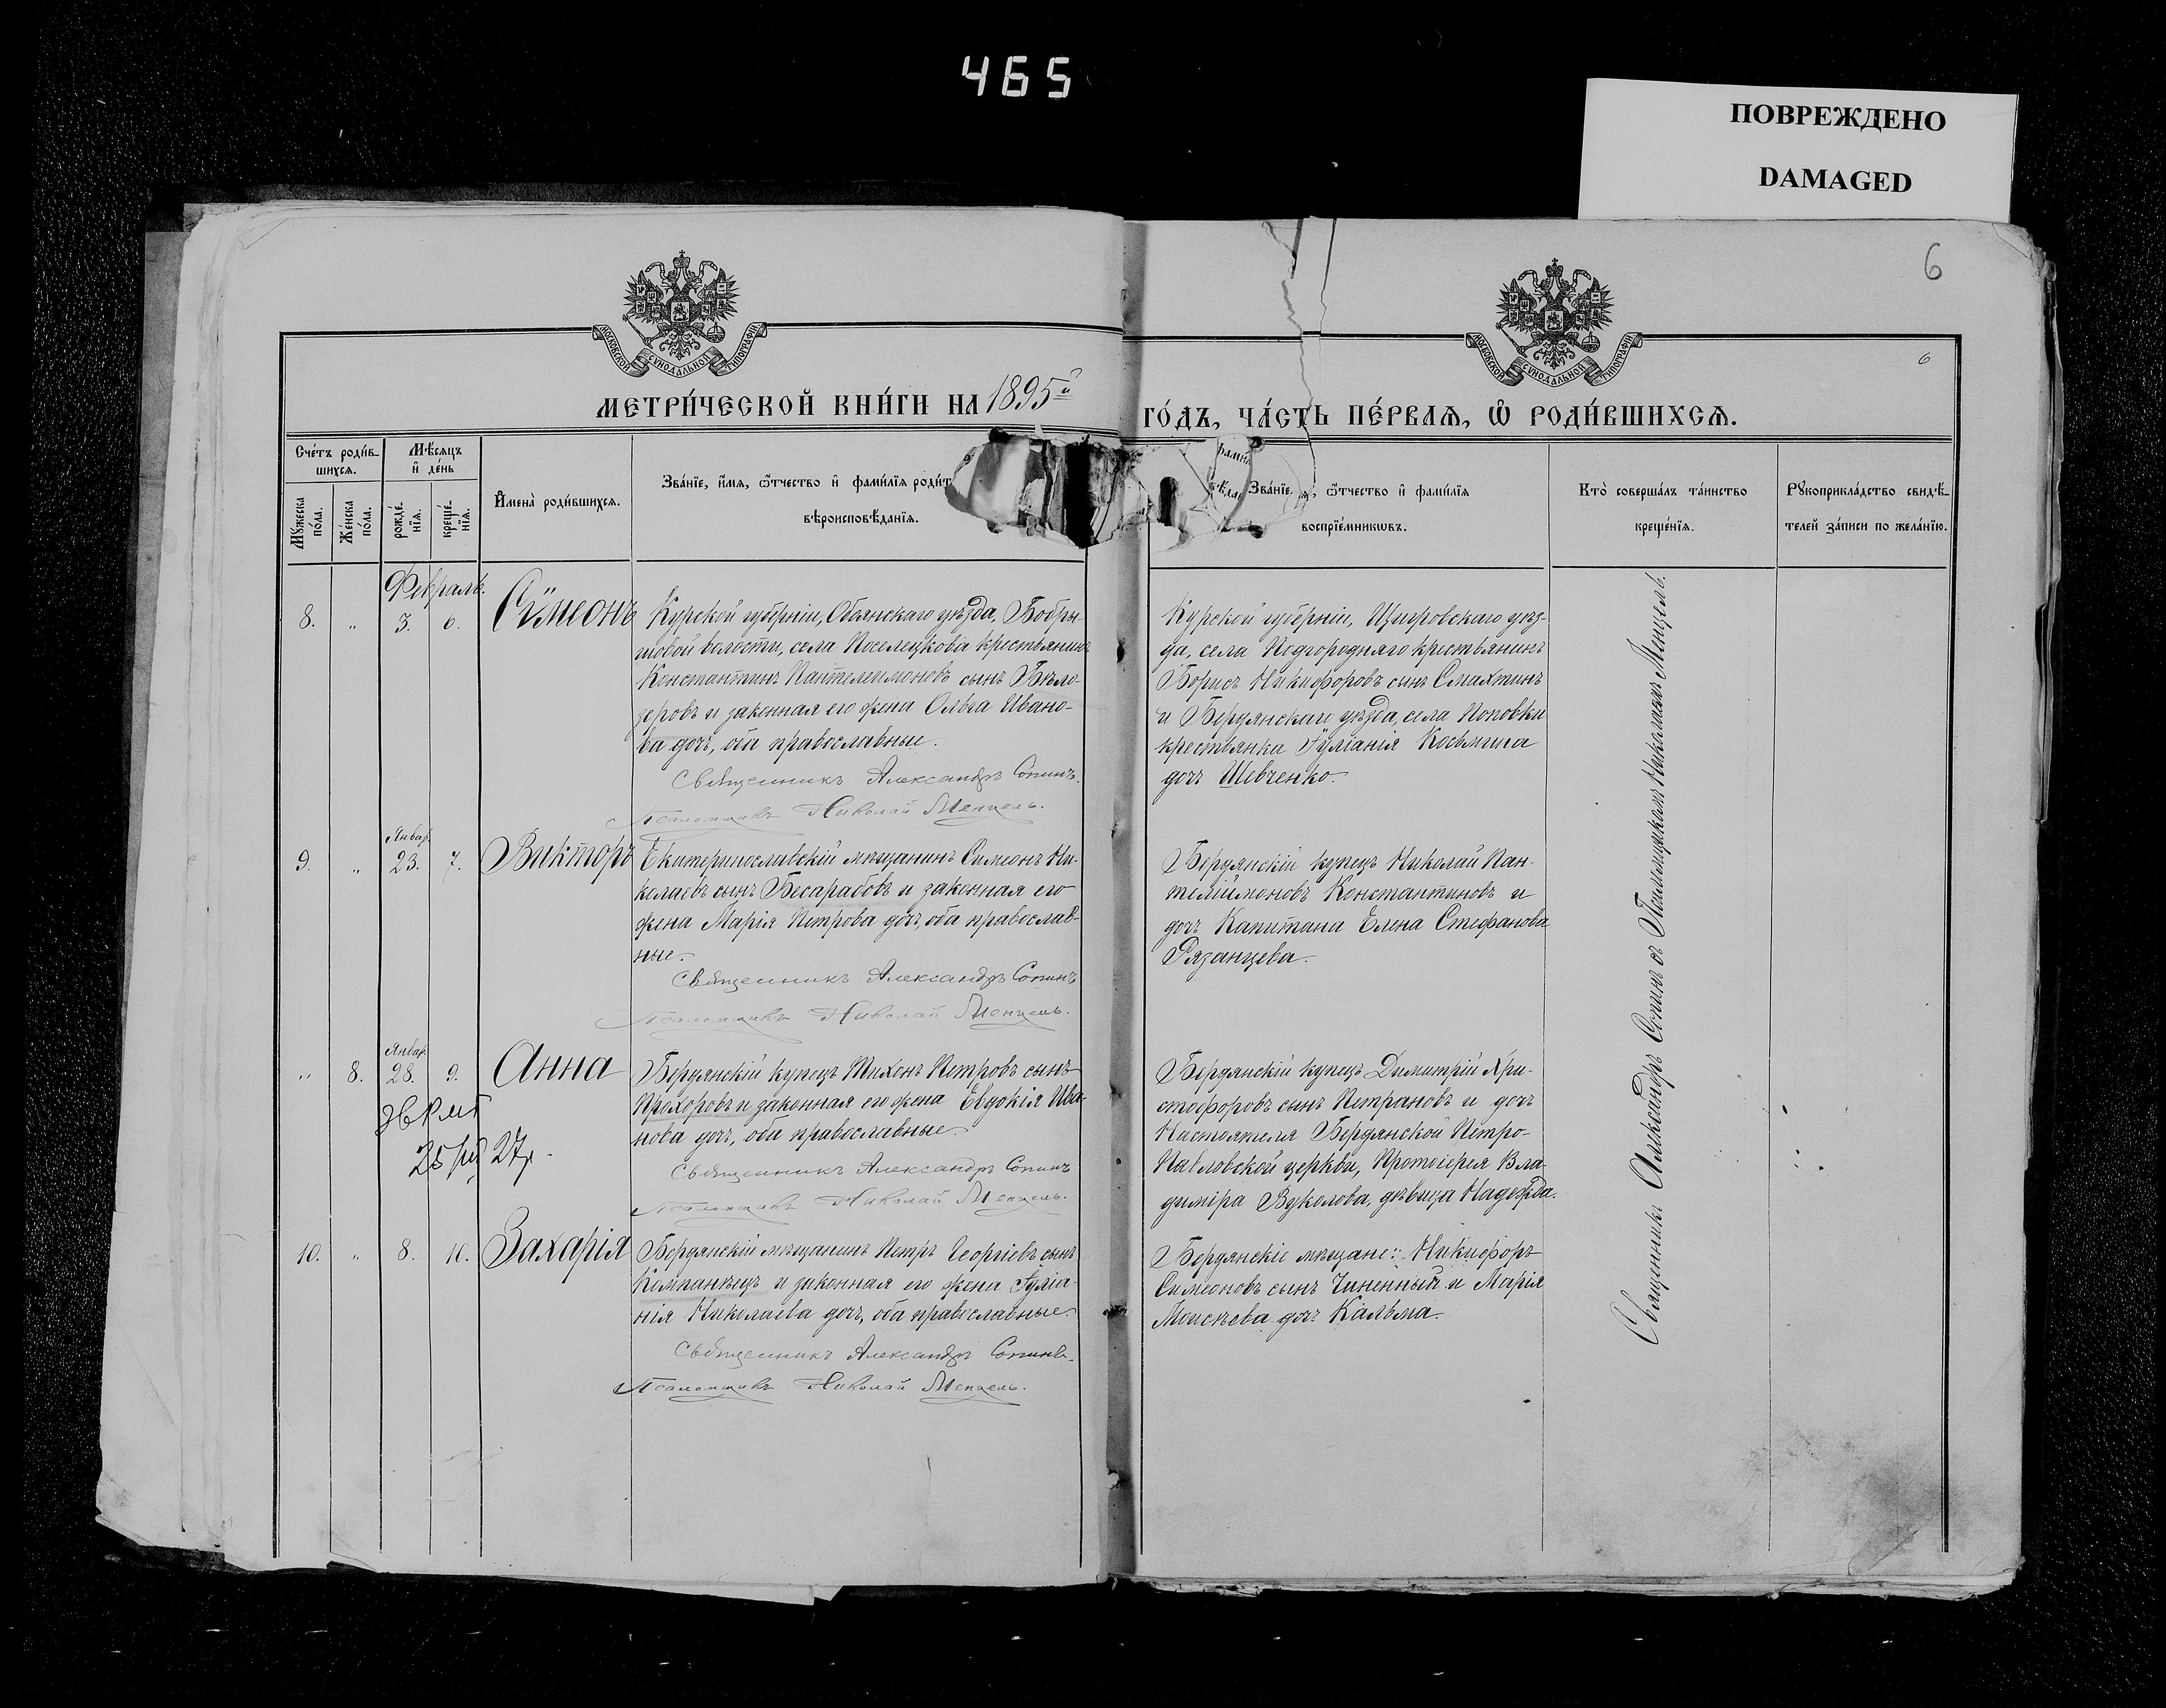 465
ПОВРЕЖДЕНО
DAMAGED
6
6
МОСКОВСКОЙ СУНОДАЛЬНОЙ ТИПОГРАФІИ
МОСКОВСКОЙ СУНОДАЛЬНОЙ ТИПОГРАФІИ
МЕТРИ́ЧЕСКОЙ КНИ́ГИ НА 1895й
ГО́ДЪ, ЧА́СТЬ ПЕ́РВАѦ, Ѡ҆ РОДИ́ВШИХСѦ.
Сче́тъ роди́в-
шихсѧ.
Мѣ́сѧцъ
и҆ де́нь
Мꙋ́жеска
по́ла.
Же́нска
по́ла.
рожде́-
нїѧ.
креще́-
нїѧ.
И҆мена̀ роди́вшихсѧ.
Зва́нїе, и҆́мѧ, ѻ҆́тчество и҆ фами́лїѧ роди́т
вѣроисповѣ́данїѧ.
Зва́нїе ѧ, ѻ҆́тчество и҆ фами́лїѧ
воспрїе́мникѡвъ.
Кто̀ соверша́лъ та́инство
креще́нїѧ.
Рꙋкоприкла́дство свидѣ́-
телей за́писи по жела́нїю.
Февраль.
8. „ 3. 6. Сѵмеонъ
Курской губерніи, Обоянскаго уѣзда, Бобры-
шовой волости, села Поселецкова крестьянинъ
Константинъ Пантелеимоновъ сынъ Бѣло-
зеровъ и законная его жена Ольга Ивано-
ва дочь, оба православные.
Священникъ Александръ Сопинъ.
Псаломщикъ Николай Менцель.
Курской губерніи, Щигровскаго уѣз-
да, села Подгородняго крестьянинъ
Борисъ Никифоровъ сынъ Смахтинъ
и Бердянскаго уѣзда, села Поповки
крестьянка Іуліанія Косьмина
дочь Шевченко.
Январ.
9. „ 23. 7. Викторъ
Екатеринославскій мѣщанинъ Симеонъ Ни-
колаевъ сынъ Бесарабовъ и законная его
жена Марія Петрова дочь, оба православ-
ные.
Священникъ Александръ Сопинъ
Псаломщикъ Николай Менцель.
Бердянскій купецъ Николай Пан-
телиимоновъ Константиновъ и
дочь Капитана Елена Стефанова
Рязанцева.
Январ.
„ 8. 28. 9. Анна
25 27
Бердянскій купецъ Тихонъ Петровъ сынъ
Прохоровъ и законная его жена Евдокія Ива-
нова дочь, оба православные.
Священникъ Александръ Сопинъ
Псаломщикъ Николай Менцель.
Бердянскій купецъ Димитрій Хри-
стофоровъ сынъ Петрановъ и дочь
Настоятеля Бердянской Петро-
Павловской церкви, Протоіерея Вла-
диміра Вуколова, дѣвица Надежда.
10. „ 8. 10. Захарія
Бердянскій мѣщанинъ Петръ Георгіевъ сынъ
Компанѣецъ и законная его жена Іуліа-
нія Николаева дочь, оба православные.
Священникъ Александръ Сопинъ.
Псаломщикъ Николай Менцель.
Бердянскіе мѣщане: Никифоръ
Симеоновъ сынъ Чиненный и Марія
Моисѣева дочь Кальма.
Священникъ Александръ Сопинъ съ Псаломщикомъ Николаемъ Менцель.